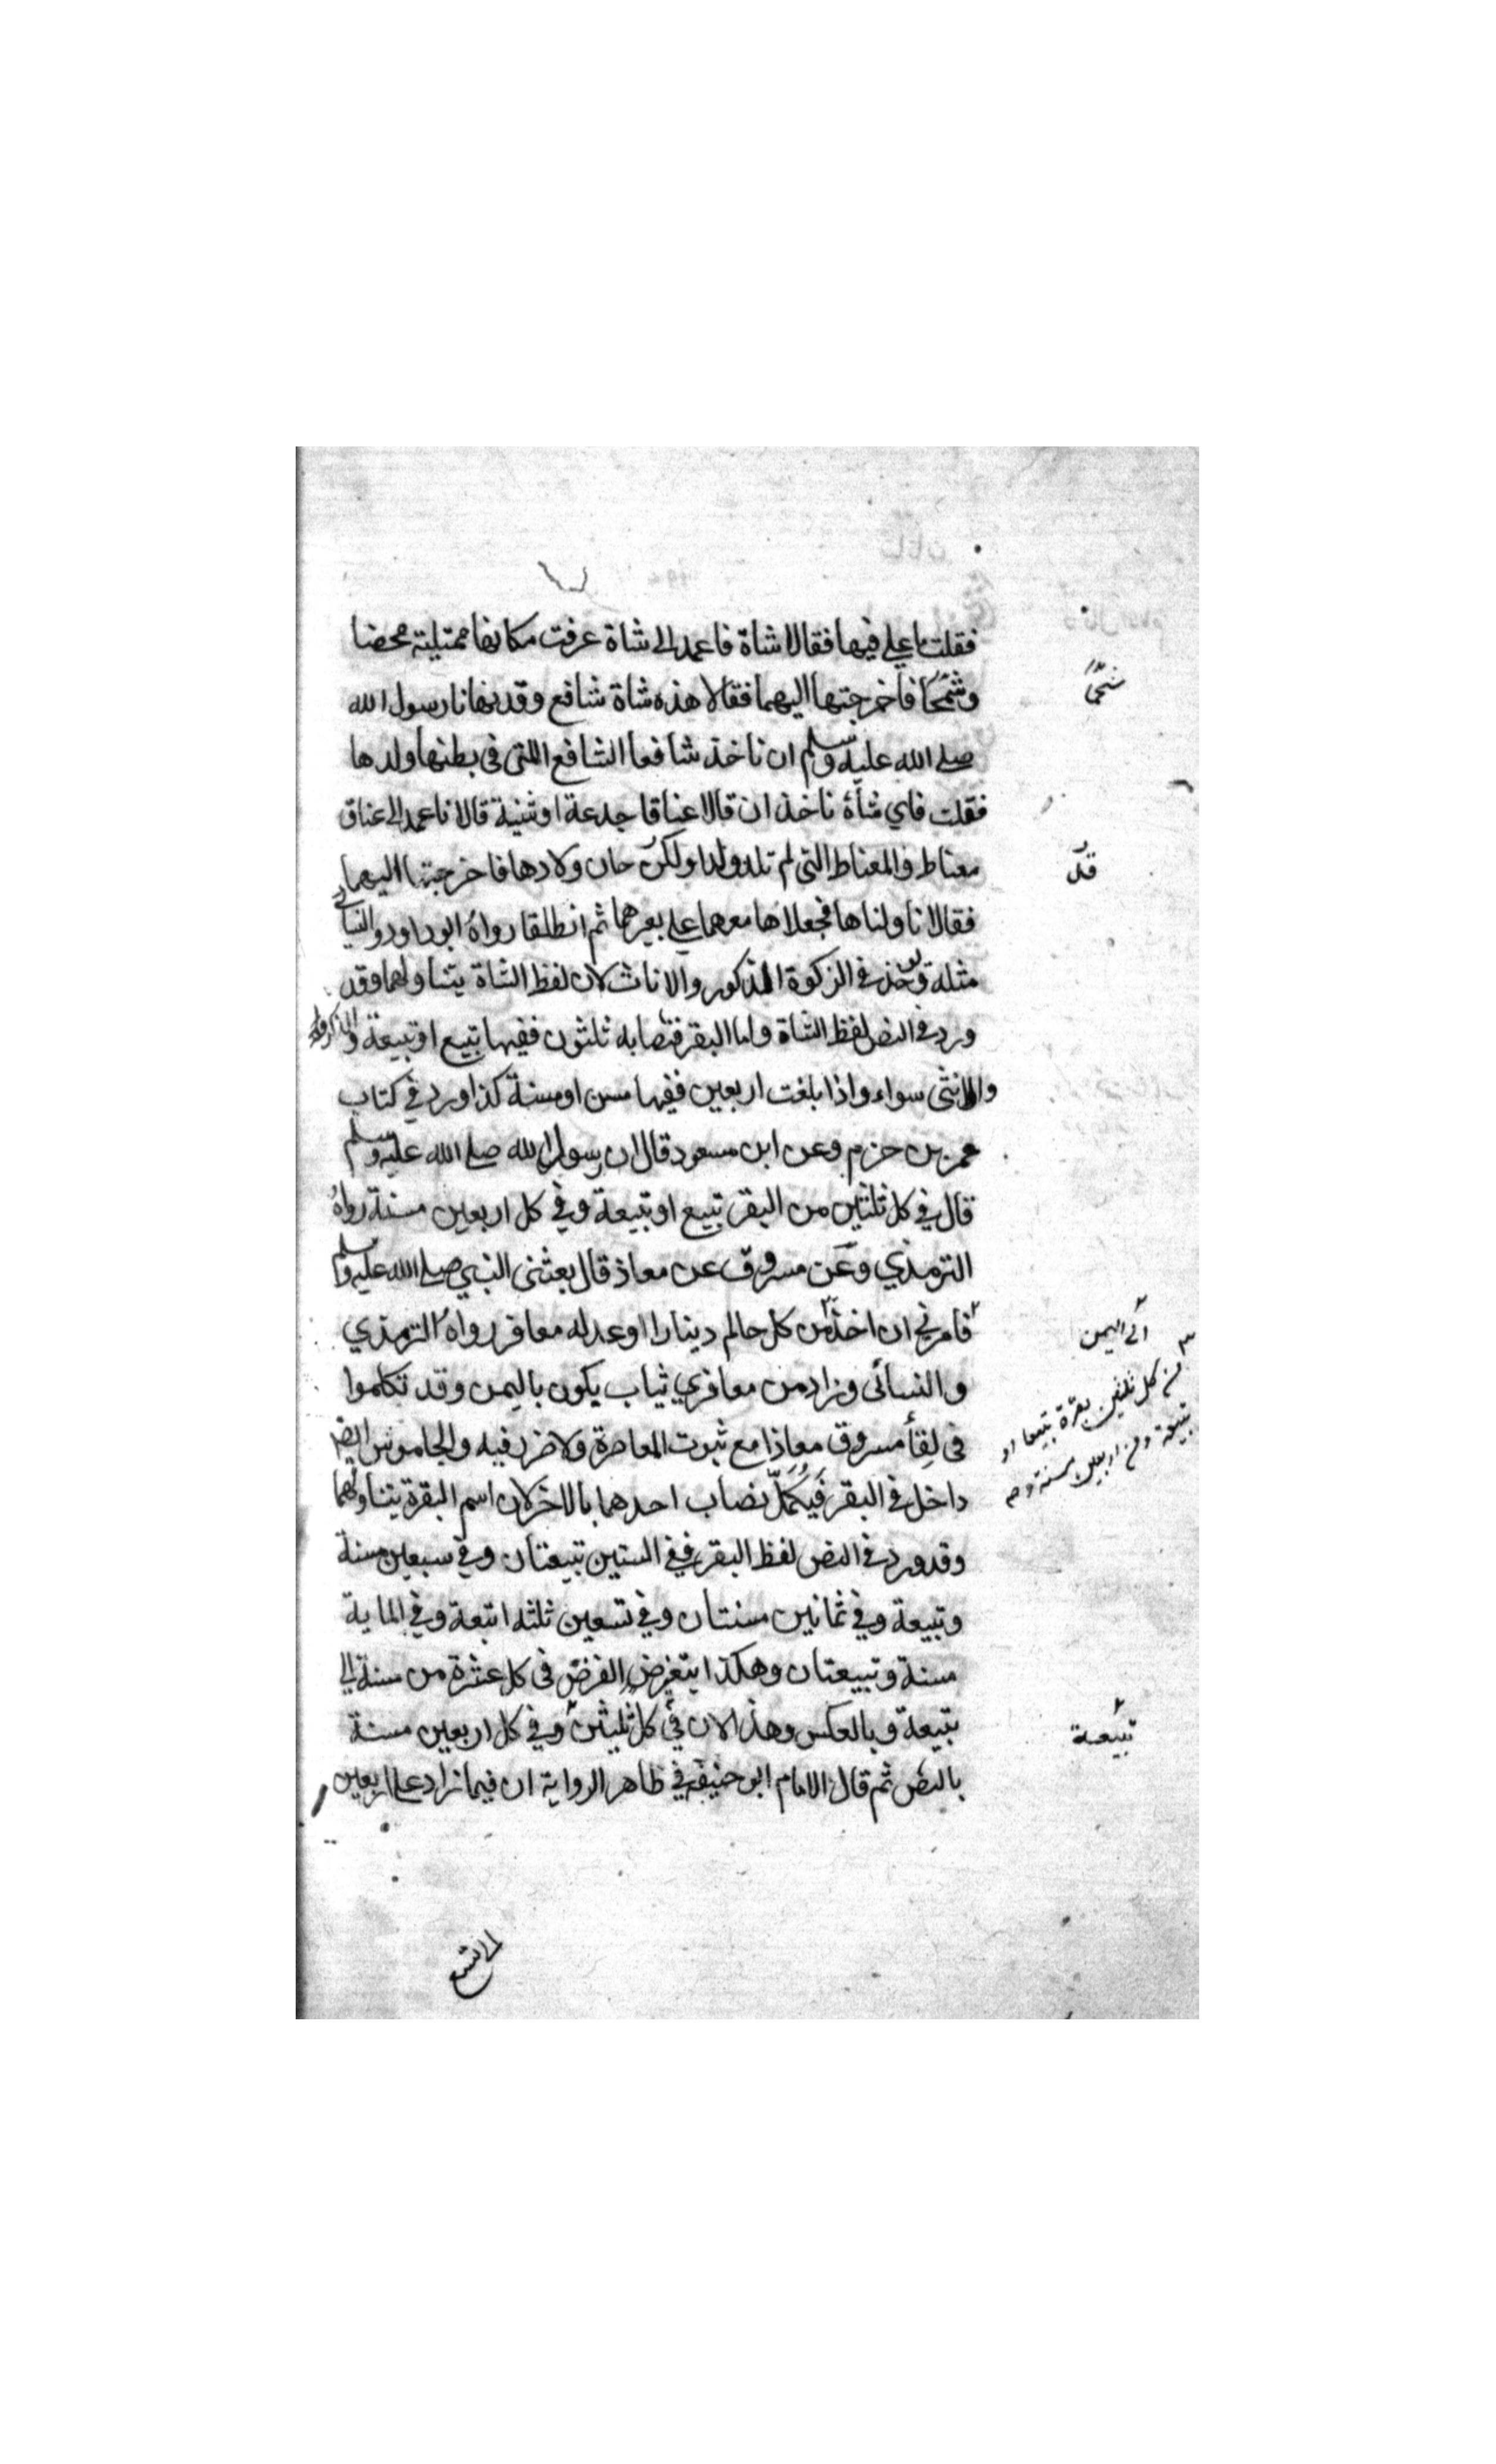 فقلت ما علي فيها فقالا شاة فاعمد الى شاة عرفت مكانها ممتلية محضا
وشحما فاخرجتها اليهما فقالا هذه شاة شافع وقد نهانا رسول الله
صلى الله عليه وسلم ان ناخذ شافعا الشافع اللتى فى بطنها ولدها
فقلت فاي شأة ناخذ ان قالا عناقا جدعة او ثنية قالا فاعمد الى عناق
معناط والمعناط التى لم تلد ولدا ولكن حان ولادها فاخرجتها اليهما
فقالا ناولناها فجعلاها معهما على بعيرهما ثم انطلقا رواه ابو داود والنسائى
مثله ويوخذ فى الزكوة الذكور والاناث لان لفظ الشاة يتناولهما وقد
ورد فى النص لفظ الشاة واما البقر فنصابه ثلثون ففيها تبيع او تبيعة والذكر
والانثى سواء واذا بلغت اربعين ففيها مسن او مسنة كذا ورد فى كتاب
عمر بن حزم وعن ابن مسعود قال ان رسول الله صلى الله عليه وسلم
قال فى كل ثلثين من البقر تبيع او تبيعة وفي كل اربعين مسنة رواه
الترمذي وعن مسروق عن معاذ قال بعثنى النبي صلى الله عليه وسلم
فامرني ان اخذ من كل حالم دينارا او عدله معافر رواه الترمذي
والنسائى وزاد من معافري ثياب يكون باليمن وقد تكلموا
فى لقأ مسروق معاذا مع ثبوت المعاصرة ولا ضرر فيه والجاموس ايضا
داخل فى البقر فيكمل نصاب احدهما بالاخر لان اسم البقرة يتناولهما
وقد ورد فى النص لفظ البقر ففي الستين تبيعتان وفي سبعين مسنة
وتبيعة وفي ثمانين مسنتان وفي تسعين ثلثه اتبعة وفي الماية
مسنة وتبيعتان وهكذا يتغير الفرض فى كل عشرة من مسنة الى
تبيعة وبالعكس وهذا لان في كل ثليثن وفي كل اربعين مسنة
بالنص ثم قال الامام ابو حنيفه في ظاهر الرواية ان فيما زاد على اربعين
شحما
قد
الى اليمن
من كل ثلثين بقرة تبيعا او
تبيعة ومن اربعين مسنة و
تبيعة